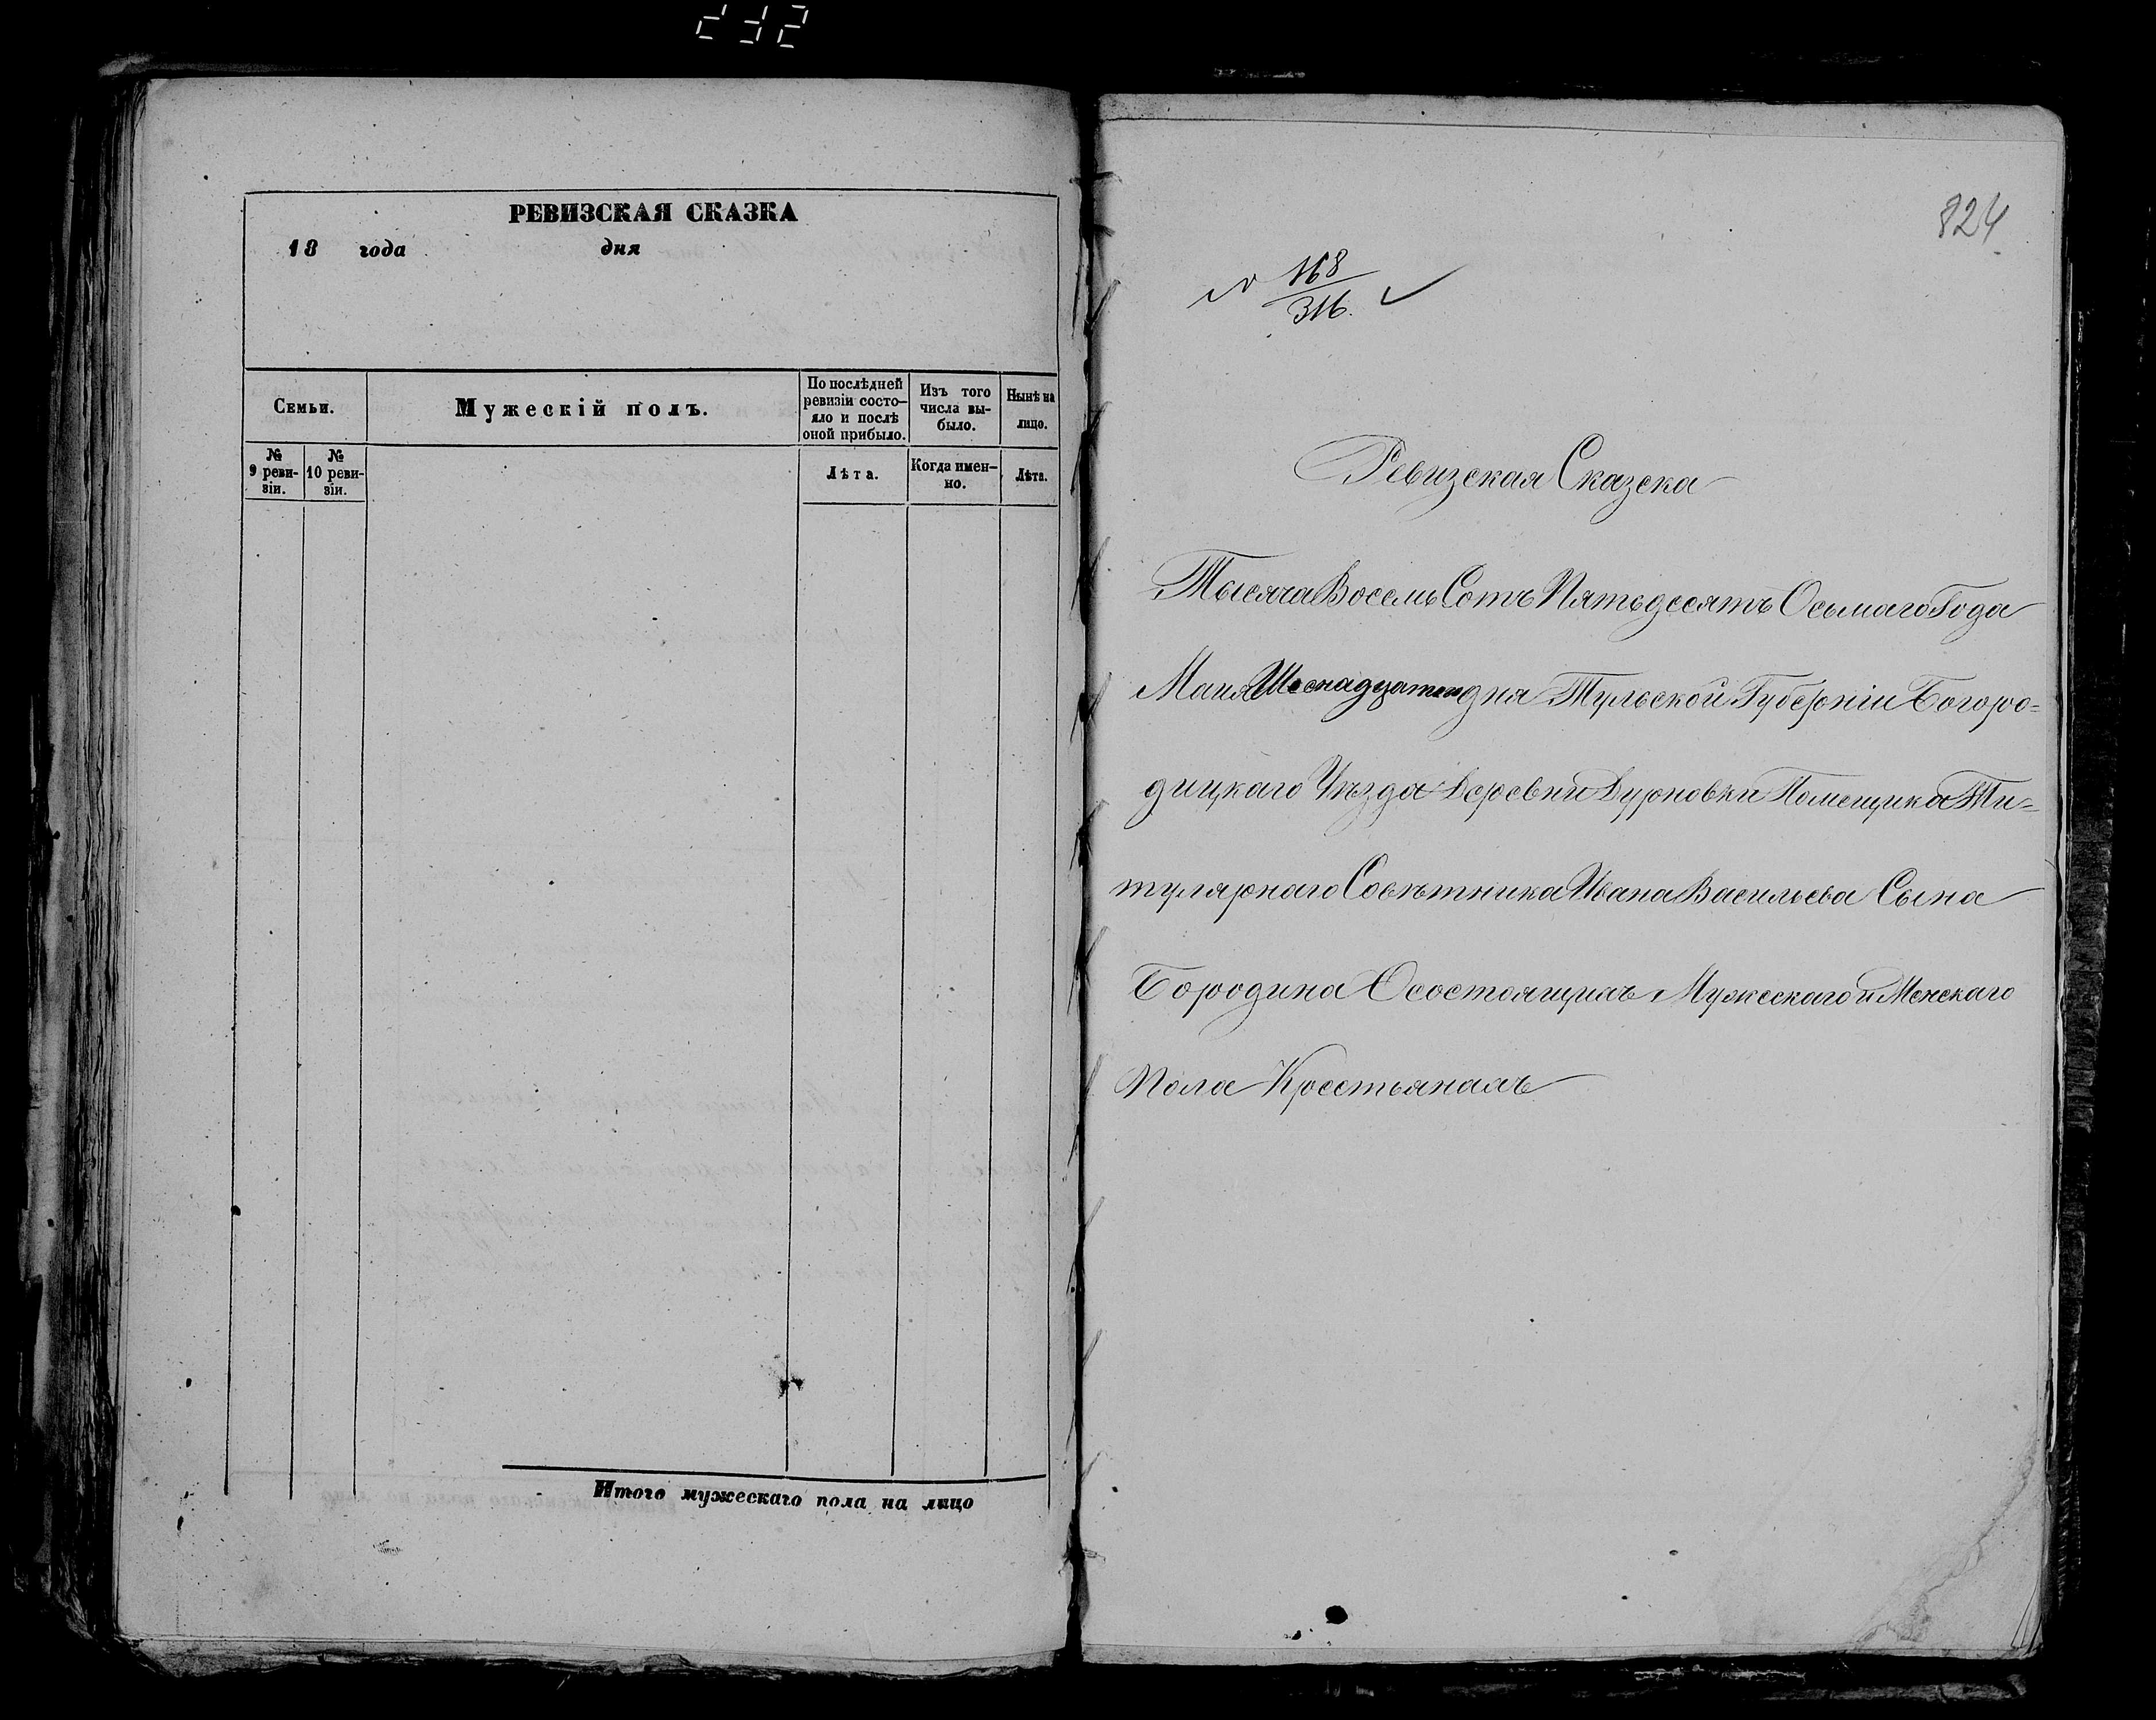 232
РЕВИЗСКАЯ СКАЗКА
18 года дня
Семьи.
Мужескій полъ.
По послѣдней ревизіи состо-
яло и послѣ
оной прибыло.
Изъ того
числа вы-
было.
Нынѣ на
лицо.
№
9 реви-
зіи.
№
10 реви-
зіи.
Лѣта.
Когда имен-
но.
Лѣта.
Итого мужескаго пола на лицо
824
№ 168
316.
Ревизская Сказска
Тысяча Восемь Сотъ Пятьдесятъ Осьмаго Года
Маия Шеснадцатаго дня Тульской Губерніи Богоро=
дицкаго Уѣзда Деревни Дурновки Помещика Ти=
тулярнаго Совѣтника Ивана Васильева Сына
Бородина О состоящихъ Мужескаго и Женскаго
Пола Крестьянахъ